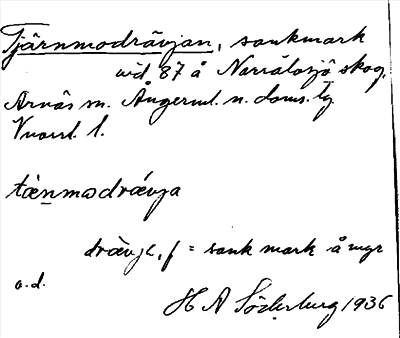 Tjärnmodrävjan, sankmark
vid 87 å Norrålasjö skog,
Arnäs sn. Ångerml. n. doms. tg
Vnorrl. l.
tæ̀nmodrævja
dræ̀vjɑ, f = sank mark å myr
o.d.
H A Söderburg 1936